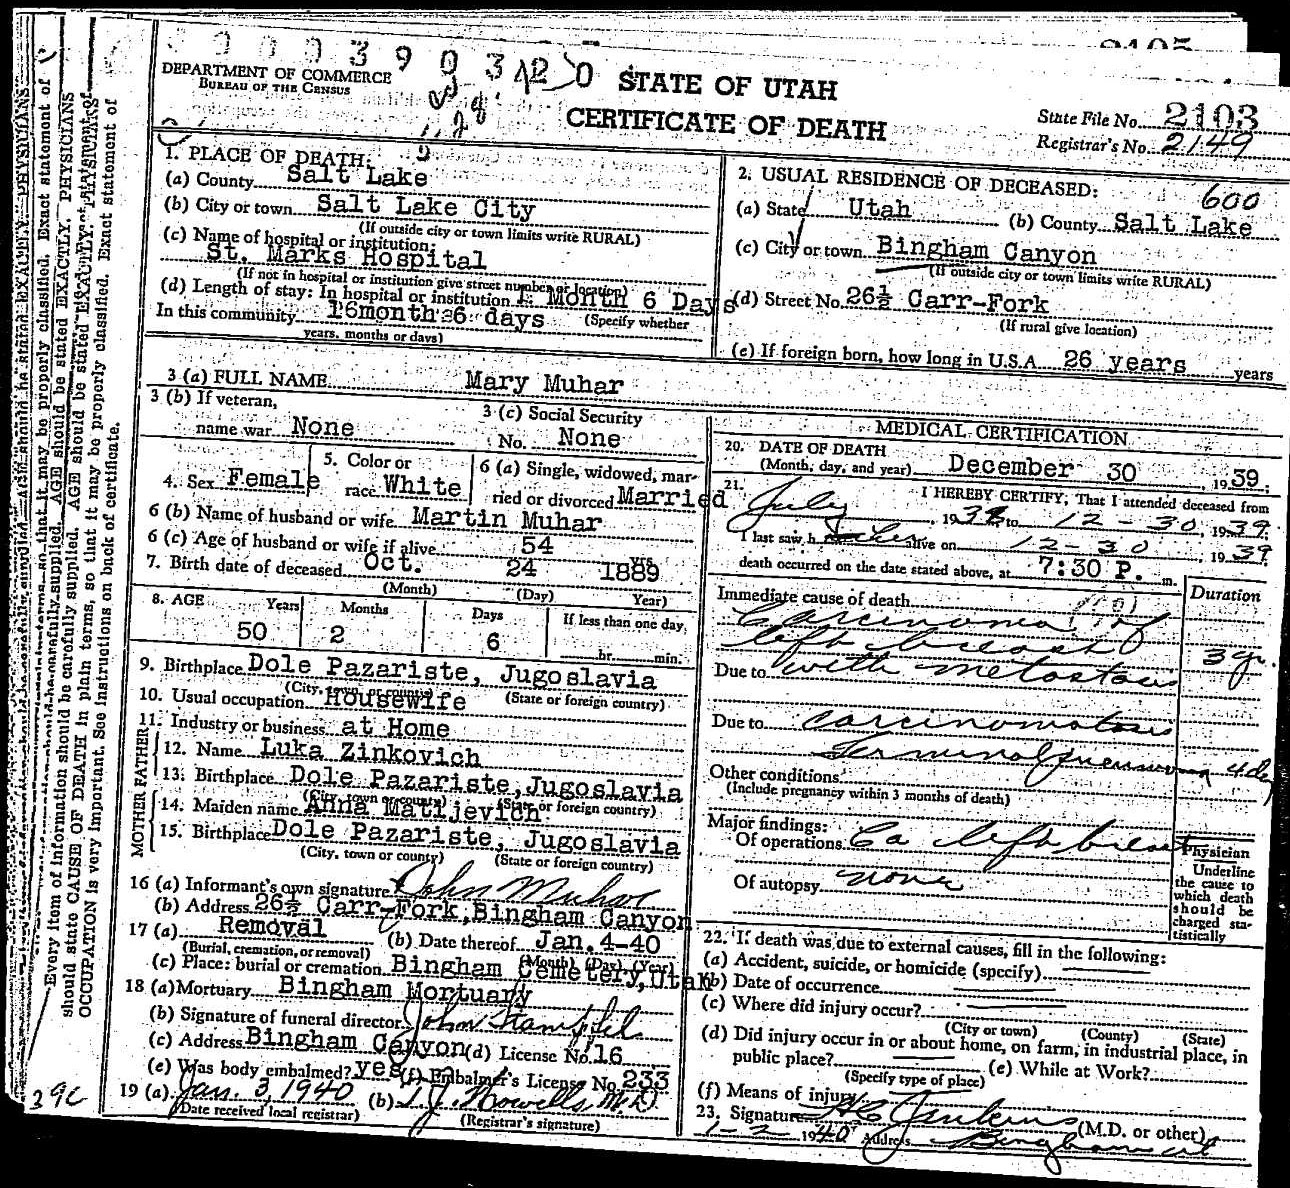 DEPARTMENT OF COMMERCE
BUREAU OF THE CENSUS
STATE OF UTAH
CERTIFICATE OF DEATH
State File No. 2103
Registrar's No. 2149
1. PLACE OF DEATH:
(a) County Salt Lake
(b) City or town Salt Lake City
(If outside city or town limits write RURAL)
(c) Name of hospital or institution:
St. Marks Hospital
(If not in hospital or institution give street number or location)
(d) Length of stay: In hospital or institution 1 Month 6 Days
In this community 16 month 26 days (Specify whether
years, months or days)
2. USUAL RESIDENCE OF DECEASED:
600
(a) State Utah (b) County Salt Lake
(c) City or town Bingham Canyon
(If outside city or town limits write RURAL)
(d) Street No. 26½ Carr-Fork
(If rural give location)
(e) If foreign born, how long in U.S.A. 26 years years
3 (a) FULL NAME Mary Muhar
3 (b) If veteran,
name war None
3 (c) Social Security
No. None
4. Sex Female
5. Color or
race White
6 (a) Single, widowed, mar-
ried or divorced Married
6 (b) Name of husband or wife Martin Muhar
6 (c) Age of husband or wife if alive 54 yrs
7. Birth date of deceased Oct. 24 1889
(Month) (Day) Year)
8. AGE Years Months Days If less than one day
50 2 6 hr. min.
9. Birthplace Dole Pazariste, Jugoslavia
(City, town or county) (State or foreign country)
10. Usual occupation Housewife
11. Industry or business at Home
FATHER
12. Name Luka Zinkovich
13. Birthplace Dole Pazariste, Jugoslavia
(City, town or county) (State or foreign country)
MOTHER
14. Maiden name Anna Matijevich
15. Birthplace Dole Pazariste, Jugoslavia
(City, town or county) (State or foreign country)
16 (a) Informant's own signature John Muhar
(b) Address 26½ Carr-Fork, Bingham Canyon
17 (a) Removal (b) Date thereof Jan. 4-40
(Burial, cremation, or removal) (Month) (Day) (Year)
(c) Place: burial or cremation Bingham Cemetery, Utah
18 (a) Mortuary Bingham Mortuary
(b) Signature of funeral director John Stampfel
(c) Address Bingham Canyon (d) License No. 16
(e) Was body embalmed? yes (f) Embalmer's License No. 233
19 (a) Jan. 3, 1940 (b) T. J. Howells M.D.
(Date received local registrar) (Registrar's signature)
MEDICAL CERTIFICATION
20. DATE OF DEATH
(Month, day, and year) December 30 1939.
21. I HEREBY CERTIFY, That I attended deceased from
July 1938 to 12-30, 1939.
I last saw h her alive on 12-30 1939
death occurred on the date stated above, at 7:30 P. m.
Immediate cause of death Duration
Carcinoma of
left breast 3 yr.
Due to with metastasis
Due to carcinomatosis
Terminal pneumonia 4 day
Other conditions
(Include pregnancy within 3 months of death)
Major findings:
Of operations Ca left breast
Of autopsy none
Physician
Underline
the cause to
which death
should be
charged sta-
tistically
22. If death was due to external causes, fill in the following:
(a) Accident, suicide, or homicide (specify)
(b) Date of occurrence
(c) Where did injury occur?
(City or town) (County) (State)
(d) Did injury occur in or about home, on farm, in industrial place, in
public place? (e) While at Work?
(Specify type of place)
(f) Means of injury
23. Signature H C Jenkins (M.D. or other)
1-2 1940 Address Bingham ut
Every item of information should be carefully supplied. AGE should be stated EXACTLY. PHYSICIANS
should state CAUSE OF DEATH in plain terms, so that it may be properly classified. Exact statement of
OCCUPATION is very important. See instructions on back of certificate.
39c